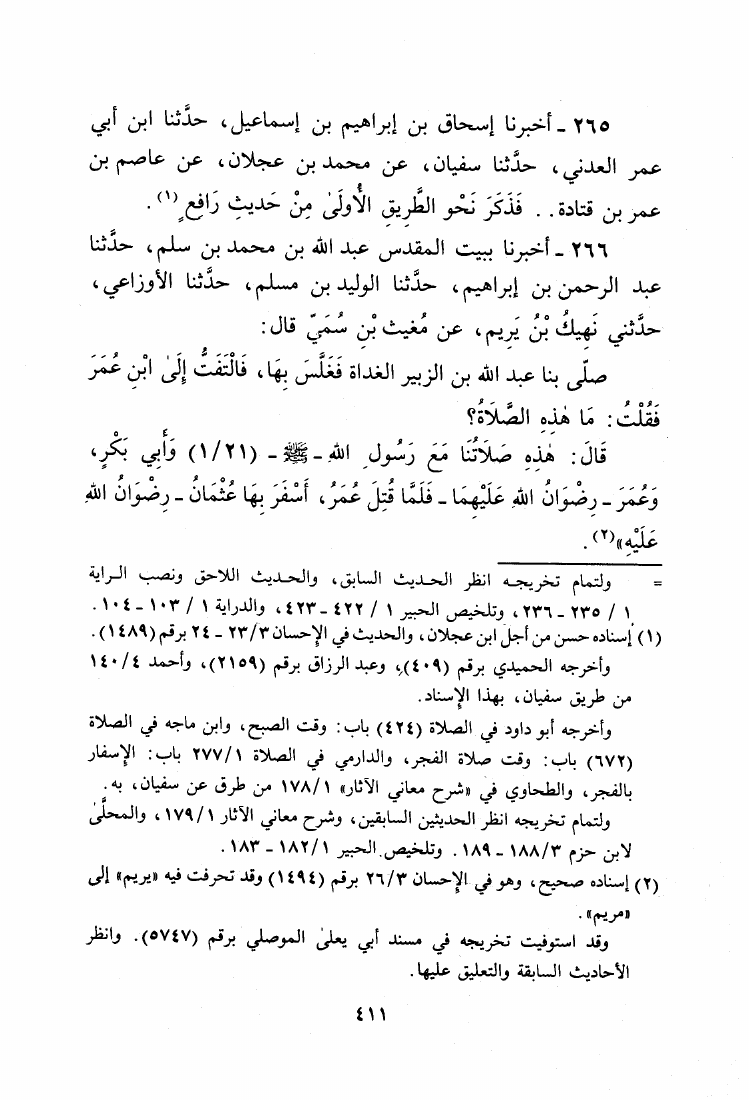 ٢٦٥ - أخبرنا إسحاق بن إبراهيم بن إسماعيل، حدَّثنا ابن أبي
عمر العدني، حدَّثنا سفيان، عن محمد بن عجلان، عن عاصم بن
عمر بن قتادة.. فَذَكَرَ نَحْوَ الطَّرِيقِ الأُولَىٰ مِنْ حَديثِ رَافِعٍ(١).
٢٦٦ - أخبرنا ببيت المقدس عبد الله بن محمد بن سلم، حدَّثنا
عبد الرحمن بن إبراهيم، حدَّثنا الوليد بن مسلم، حدَّثنا الأوزاعي،
حدَّثني نَهِيكُ بْنُ يَرِيم، عن مُغيث بْنِ سُمَيّ قال:
صلّى بنا عبد الله بن الزبير الغداة فَغَلَّسَ بِهَا، فَالْتَفَتُّ إِلَىٰ ابْنِ عُمَرَ
فَقُلْتُ: مَا هٰذِهِ الصَّلَاةُ؟
قَالَ: هٰذِهِ صَلَاتُنَا مَعَ رَسُولِ اللهِ - ﷺ - (١/٢١) وَأَبِي بَكْرٍ،
وَعُمَرَ - رِضْوَانُ اللهِ عَلَيْهِمَا - فَلَمَّا قُتِلَ عُمَرُ، أَسْفَرَ بِهَا عُثْمَانُ - رِضْوَانُ اللهِ
عَلَيْهِ»(٢).
= ولتمام تخريجه انظر الحديث السابق، والحديث اللاحق ونصب الراية
١ / ٢٣٥ - ٢٣٦، وتلخيص الحبير ١ / ٤٢٢ - ٤٢٣، والدراية ١ / ١٠٣ - ١٠٤.
(١) إسناده حسن من أجل ابن عجلان، والحديث في الإحسان ٢٣/٣ - ٢٤ برقم (١٤٨٩).
وأخرجه الحميدي برقم (٤٠٩)، وعبد الرزاق برقم (٢١٥٩)، وأحمد ١٤٠/٤
من طريق سفيان، بهذا الإسناد.
وأخرجه أبو داود في الصلاة (٤٢٤) باب: وقت الصبح، وابن ماجه في الصلاة
(٦٧٢) باب: وقت صلاة الفجر، والدارمي في الصلاة ٢٧٧/١ باب: الإسفار
بالفجر، والطحاوي في «شرح معاني الآثار» ١٧٨/١ من طرق عن سفيان، به.
ولتمام تخريجه انظر الحديثين السابقين، وشرح معاني الآثار ١٧٩/١، والمحلَّىٰ
لابن حزم ١٨٨/٣ - ١٨٩. وتلخيص الحبير ١٨٢/١ - ١٨٣.
(٢) إسناده صحيح، وهو في الإحسان ٢٦/٣ برقم (١٤٩٤) وقد تحرفت فيه «يريم» إلى
«مريم».
وقد استوفيت تخريجه في مسند أبي يعلىٰ الموصلي برقم (٥٧٤٧). وانظر
الأحاديث السابقة والتعليق عليها.
٤١١